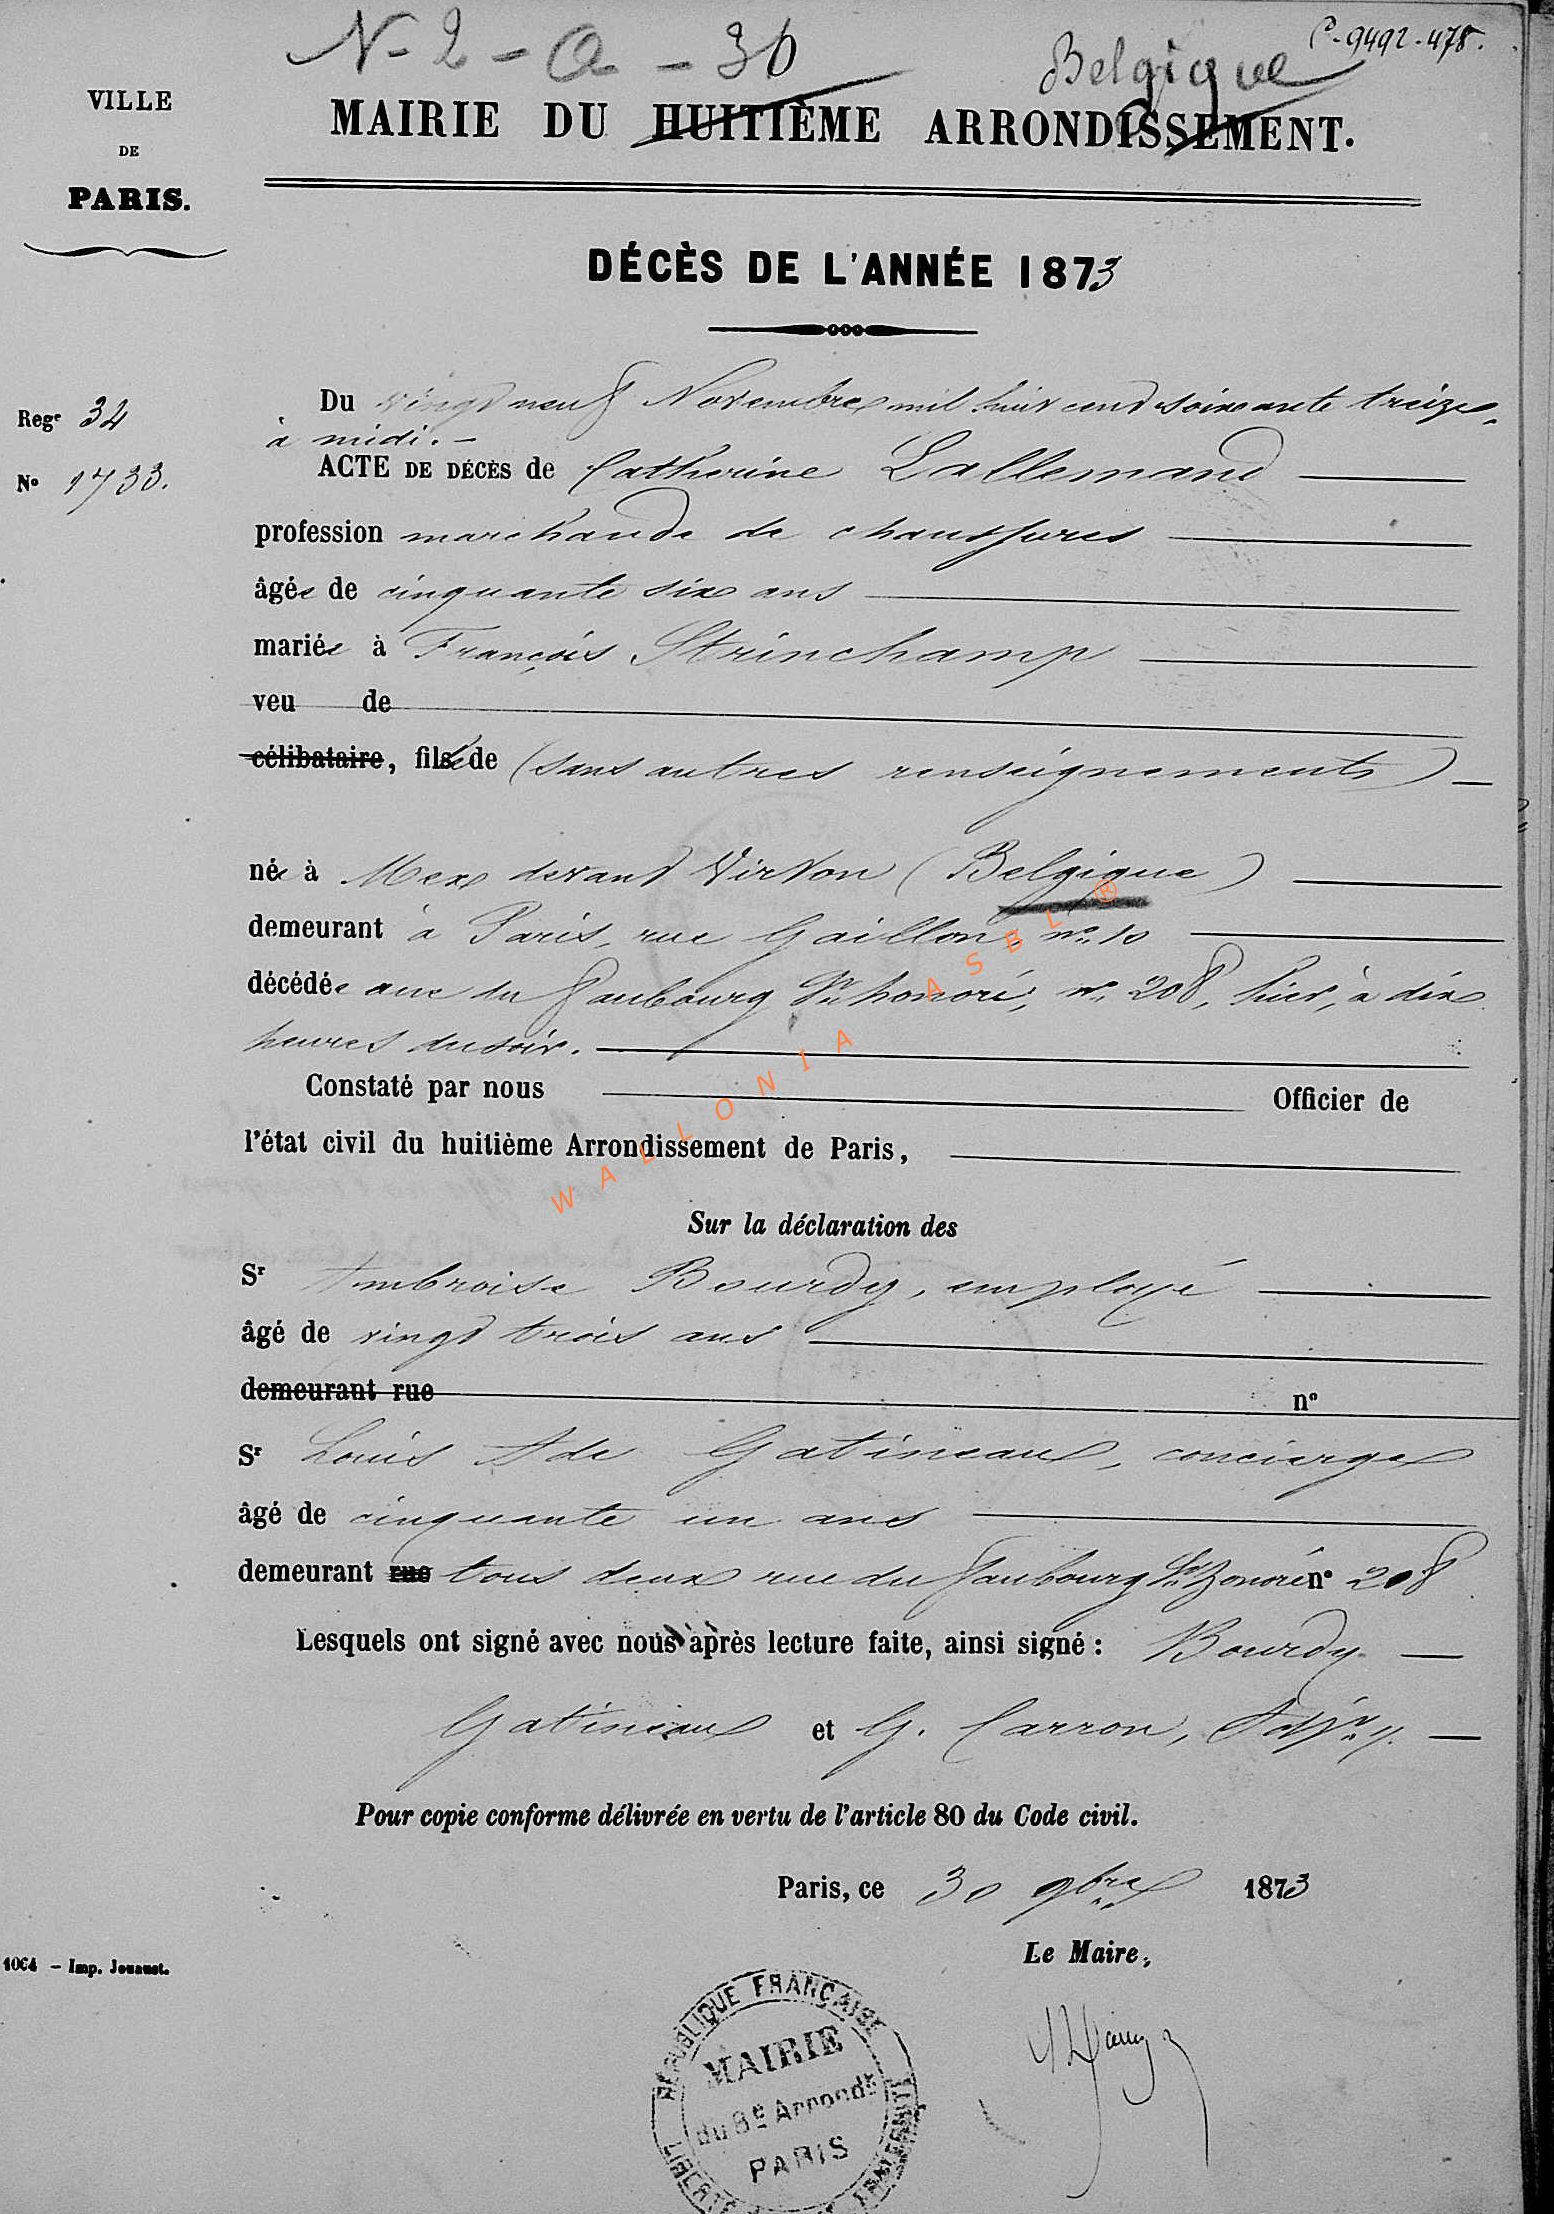 N-2-a-36
Belgique
C-9492-478.
VILLE
DE
PARIS.
MAIRIE DU HUITIÈME ARRONDISSEMENT.
DÉCÈS DE L'ANNÉE 1873
Regre 34
No 1733.
Du vingt neuf Novembre mil huit cent soixante treize,
à midi. -
ACTE DE DÉCÈS de Catherine Lallemand
profession marchande de chaussures
âgée de cinquante six ans
mariée à François Strinchamp
veu de
célibataire, fille de (sans autres renseignements)
née à Mex devant Virton (Belgique)
demeurant à Paris, rue Gaillon, no 10
décédée rue du faubourg St honoré, no 208, hier, à dix
heures du soir.
Constaté par nous Officier de
l'état civil du huitième Arrondissement de Paris,
Sur la déclaration des
Sr Ambroise Bourdy, employé
âgé de vingt trois ans
demeurant rue no
Sr Louis Gatineau, concierge
âgé de cinquante un ans
demeurant rue tous deux rue du faubourg St honoré no 208
Lesquels ont signé avec nous après lecture faite, ainsi signé : Bourdy
Gatineau et G. Carron, Adjt
Pour copie conforme délivrée en vertu de l'article 80 du Code civil.
Paris, ce 30 9bre 1873
Le Maire,
1064 - Imp. Jouaust.
RÉPUBLIQUE FRANÇAISE
MAIRIE
du 8e Arrondt
PARIS
LIBERTÉ FRATERNITÉ
WALLONIA ASBL ®